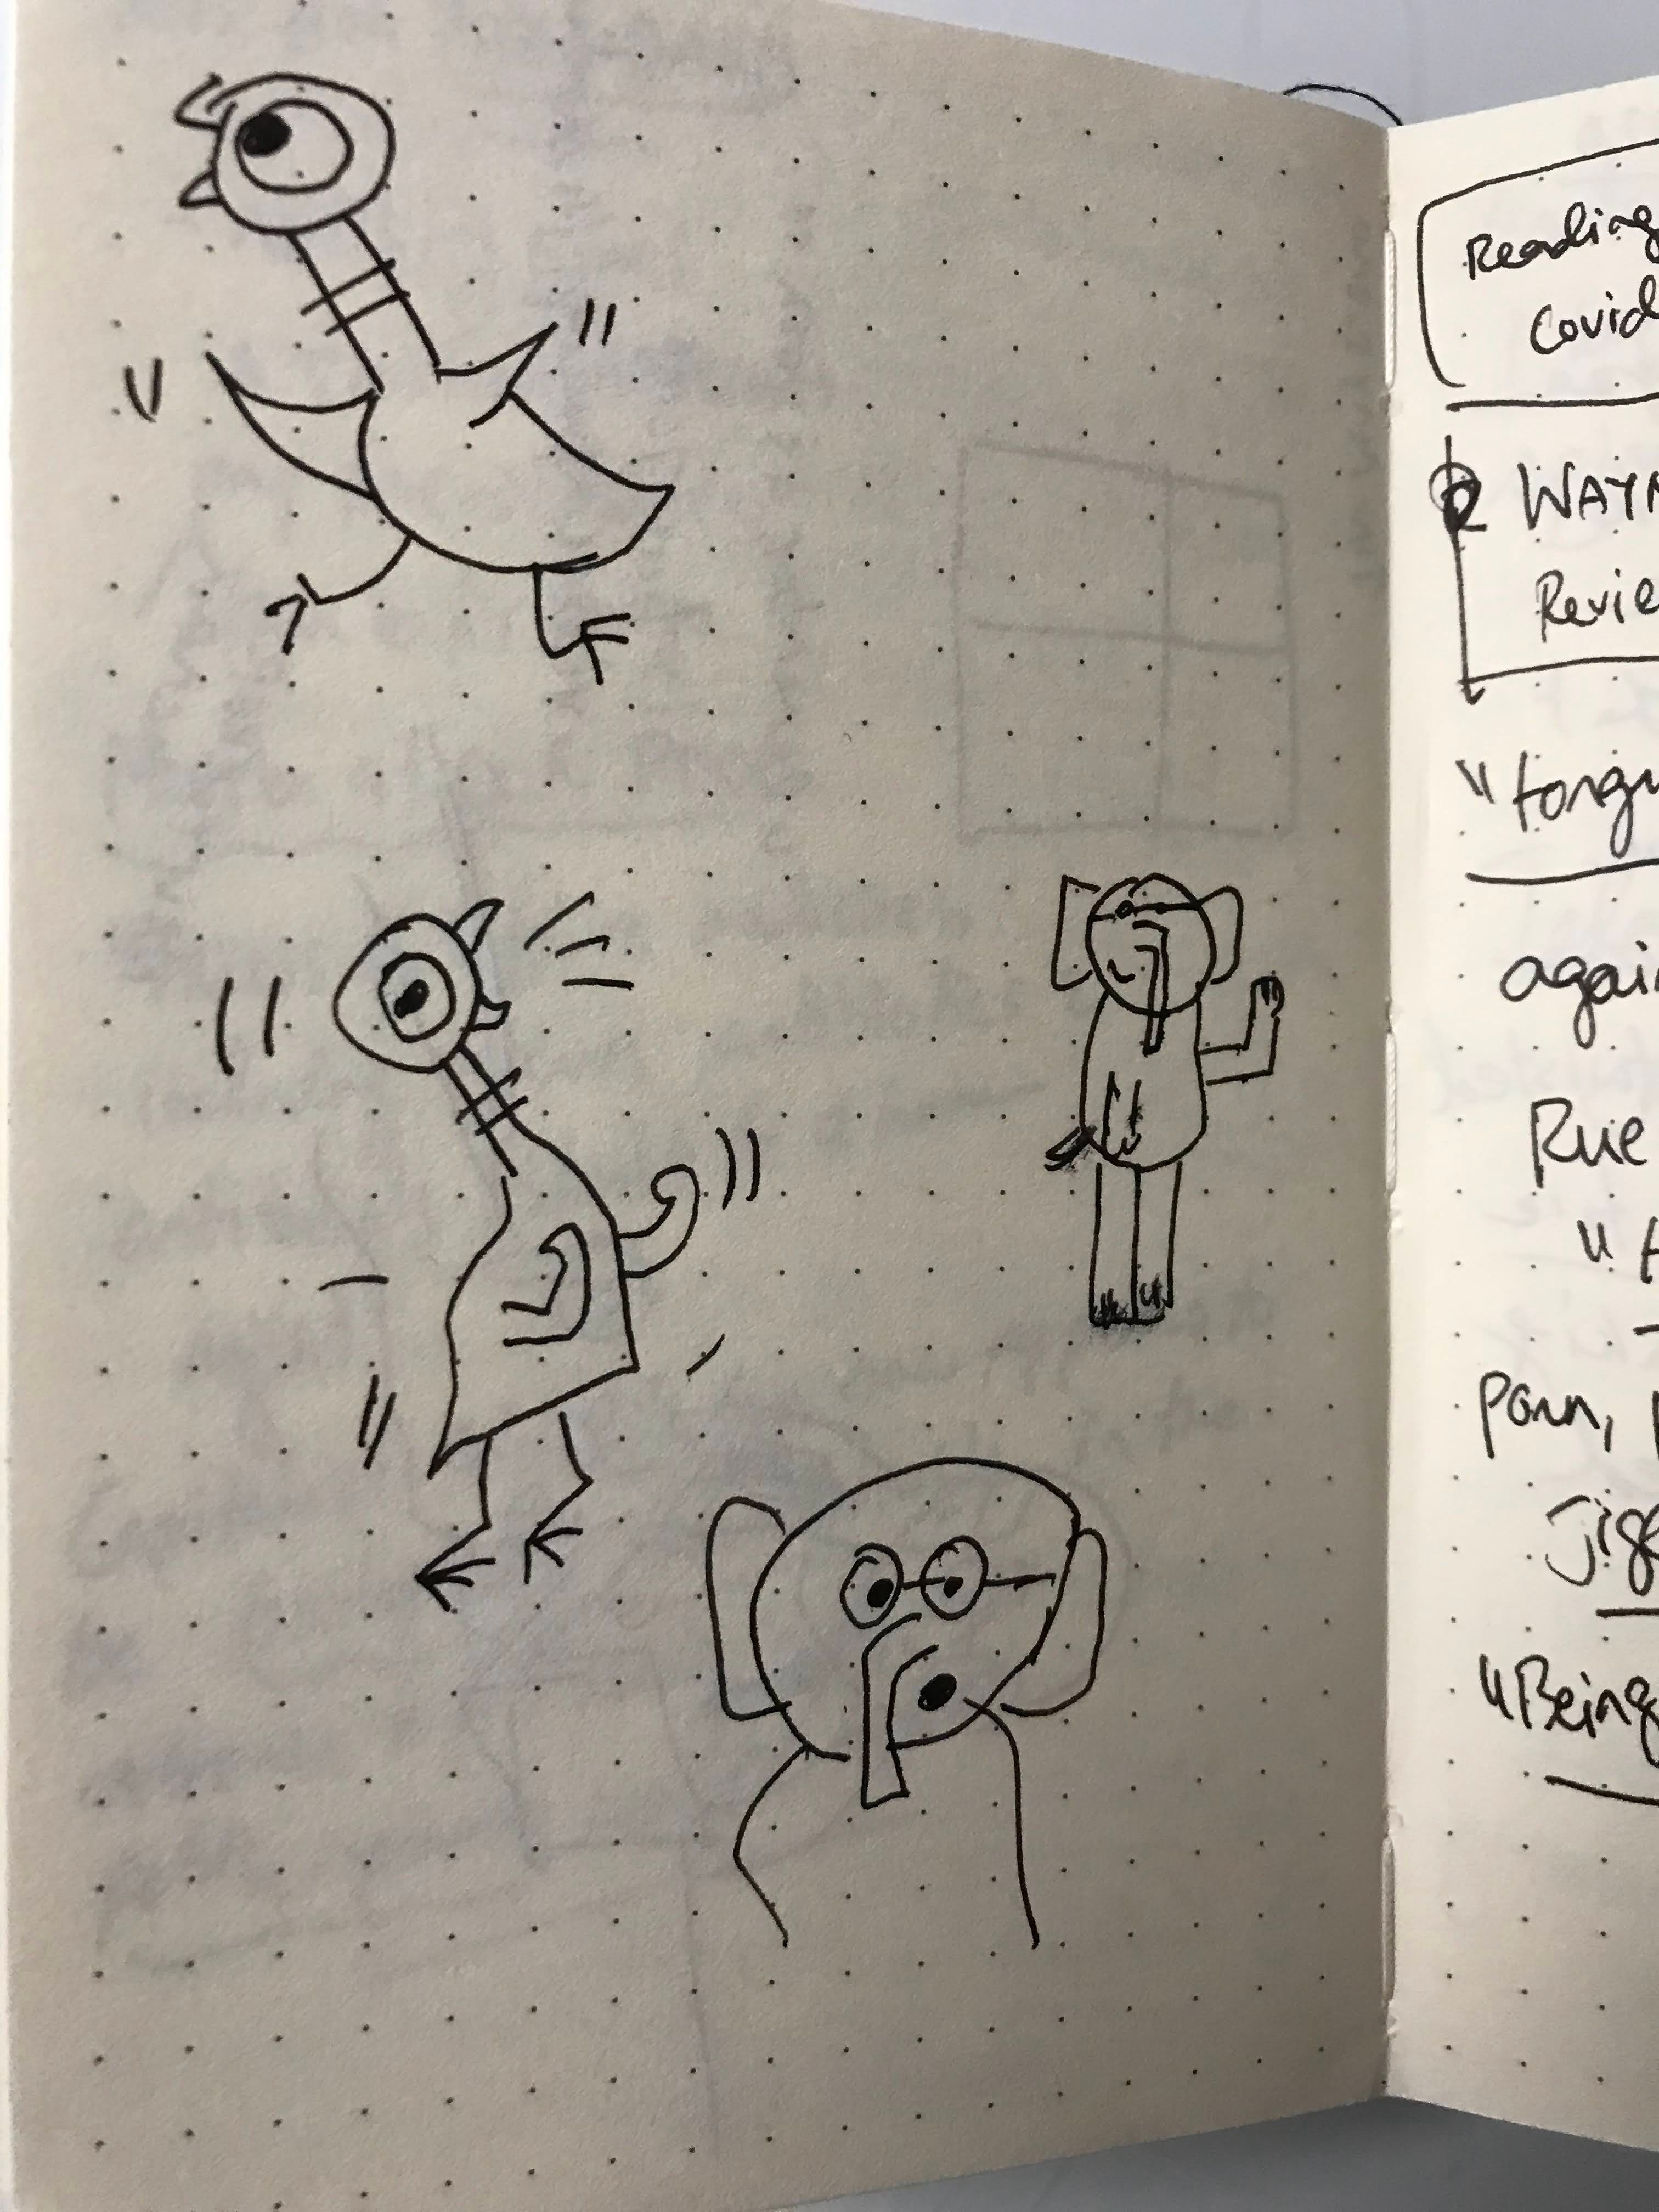 Reading
Covid
WAYN
Revie
"tongu
again
Rue
"t
Jigg
"Being